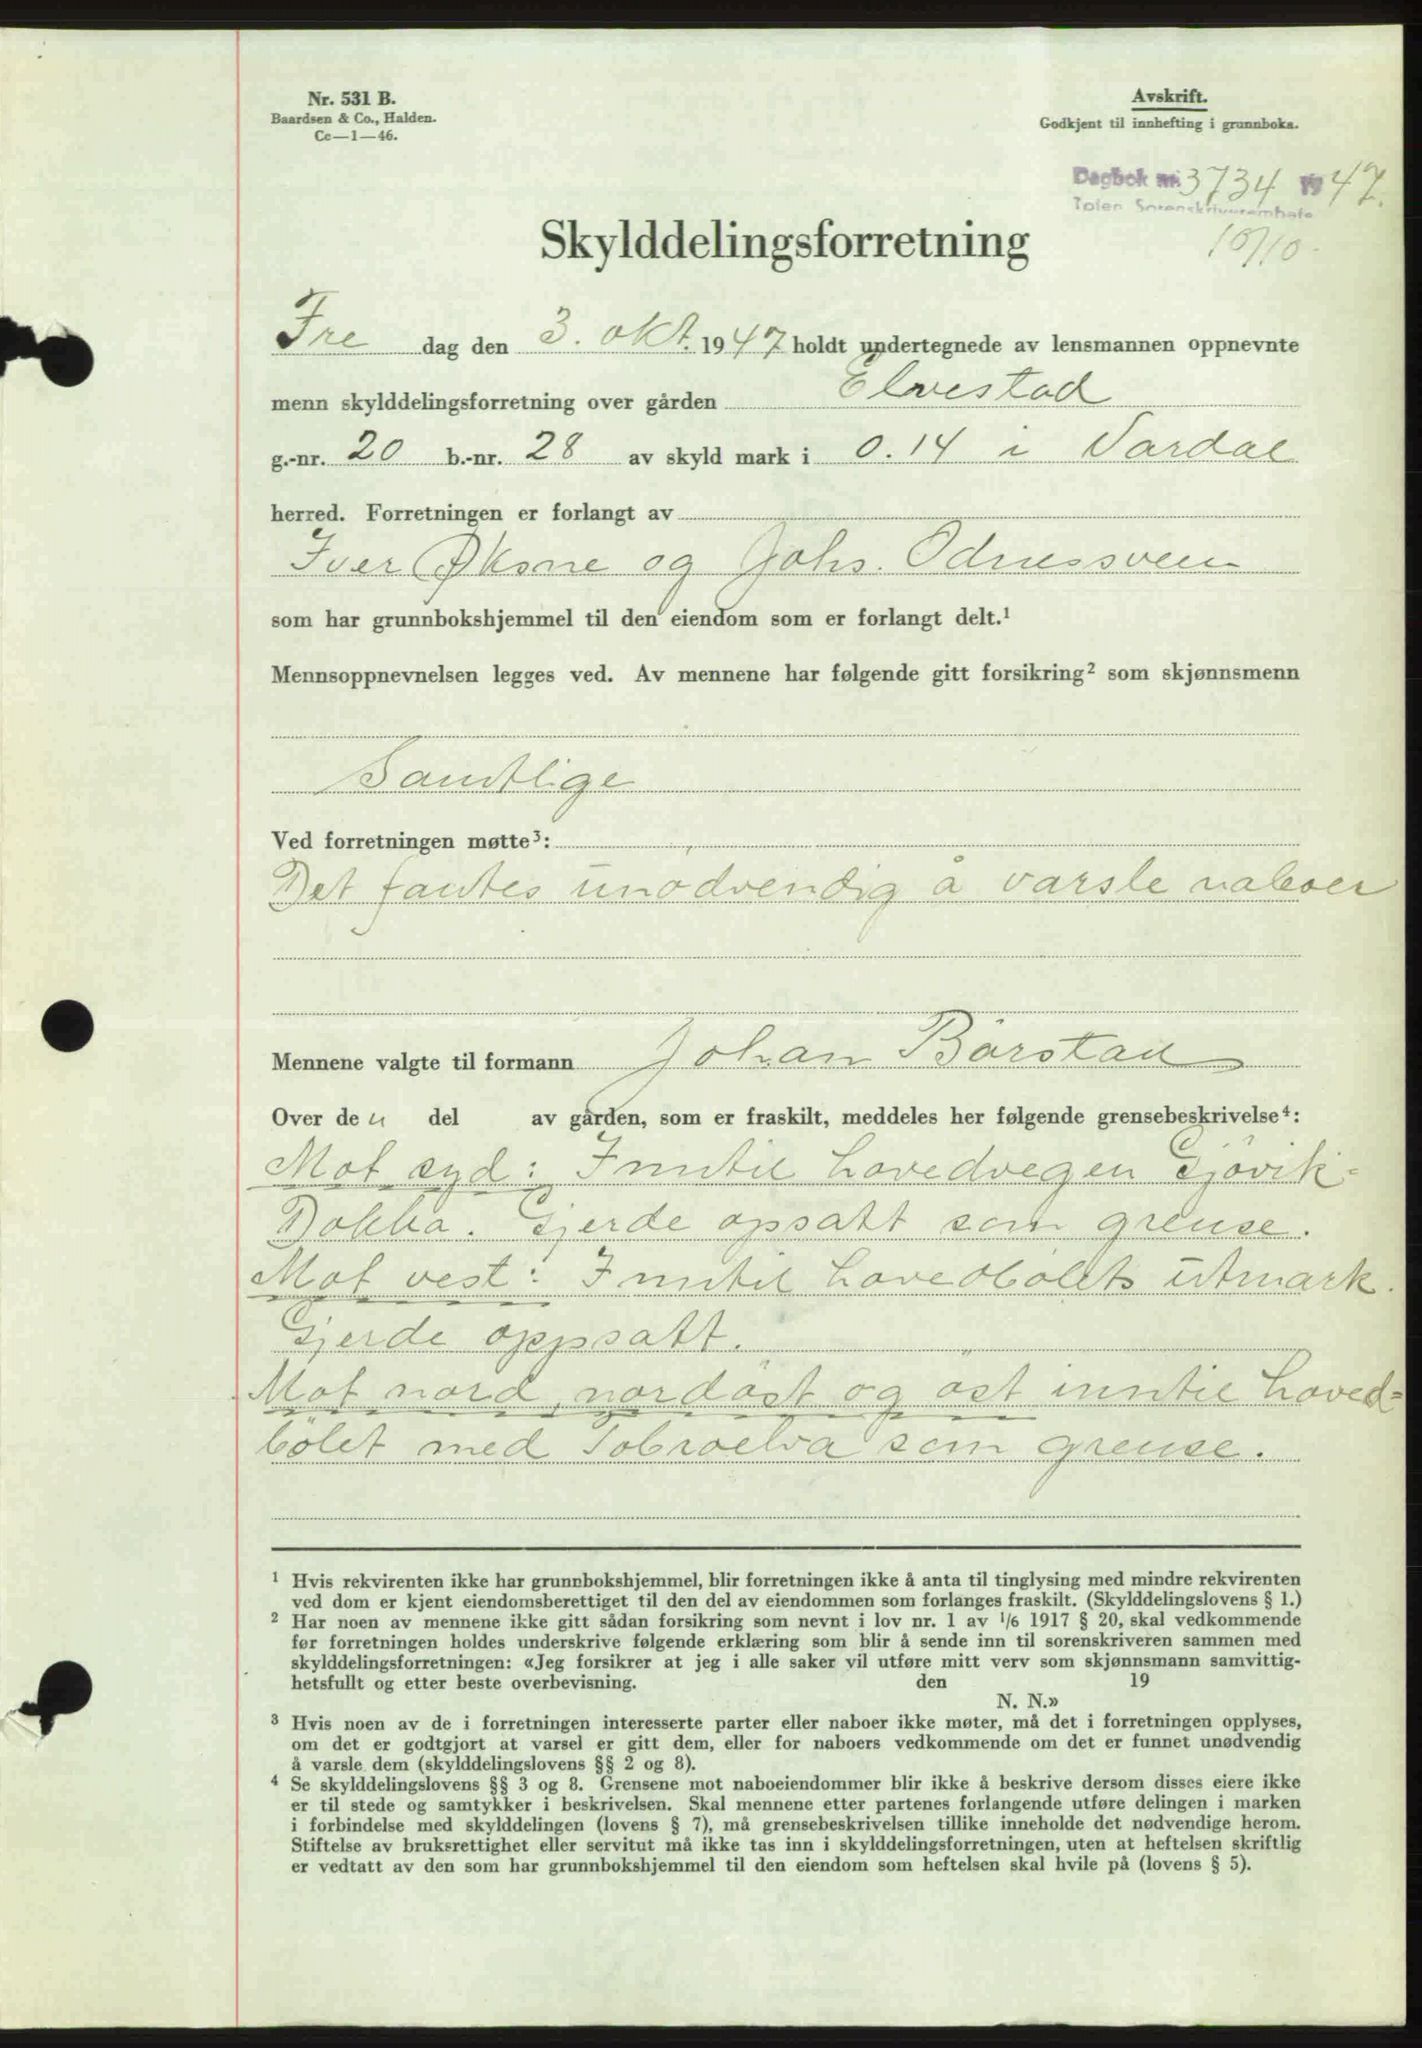 Nr. 531 B.
Baardsen & Co., Halden.
Cc—1—46.
Avskrift.
Godkjent til innhefting i grunnboka.
Dagbok nr. 3734 1947.
Toten Sorenskriverembete
10/10
Skylddelingsforretning
Fre dag den 3. okt. 1947 holdt undertegnede av lensmannen oppnevnte
menn skylddelingsforretning over gården Elvestad
g.-nr. 20 b.-nr. 28 av skyld mark i 0.14 i Vardal
herred. Forretningen er forlangt av
Iver Øksne og Johs. Odnessveen
som har grunnbokshjemmel til den eiendom som er forlangt delt.¹
Mennsoppnevnelsen legges ved. Av mennene har følgende gitt forsikring² som skjønnsmenn
Samtlige
Ved forretningen møtte³:
Det fantes unødvendig å varsle naboer
Mennene valgte til formann Johan Bårstad
Over den del av gården, som er fraskilt, meddeles her følgende grensebeskrivelse⁴:
Mot syd: Inntil hovedvegen Gjövik-
Dokka. Gjerde opsatt som grense.
Mot vest: Inntil hovedbölets utmark.
Gjerde oppsatt.
Mot nord, nordöst og öst inntil hoved=
bölet med som grense.
¹ Hvis rekvirenten ikke har grunnbokshjemmel, blir forretningen ikke å anta til tinglysing med mindre rekvirenten
ved dom er kjent eiendomsberettiget til den del av eiendommen som forlanges fraskilt. (Skylddelingslovens § 1.)
² Har noen av mennene ikke gitt sådan forsikring som nevnt i lov nr. 1 av 1/6 1917 § 20, skal vedkommende
før forretningen holdes underskrive følgende erklæring som blir å sende inn til sorenskriveren sammen med
skylddelingsforretningen: «Jeg forsikrer at jeg i alle saker vil utføre mitt verv som skjønnsmann samvittig-
hetsfullt og etter beste overbevisning. den 19
N. N.»
³ Hvis noen av de i forretningen interesserte parter eller naboer ikke møter, må det i forretningen opplyses,
om det er godtgjort at varsel er gitt dem, eller for naboers vedkommende om det er funnet unødvendig
å varsle dem (skylddelingslovens §§ 2 og 8).
⁴ Se skylddelingslovens §§ 3 og 8. Grensene mot naboeiendommer blir ikke å beskrive dersom disses eiere ikke
er til stede og samtykker i beskrivelsen. Skal mennene etter partenes forlangende utføre delingen i marken
i forbindelse med skylddelingen (lovens § 7), må grensebeskrivelsen tillike inneholde det nødvendige herom.
Stiftelse av bruksrettighet eller servitut må ikke tas inn i skylddelingsforretningen, uten at heftelsen skriftlig
er vedtatt av den som har grunnbokshjemmel til den eiendom som heftelsen skal hvile på (lovens § 5).